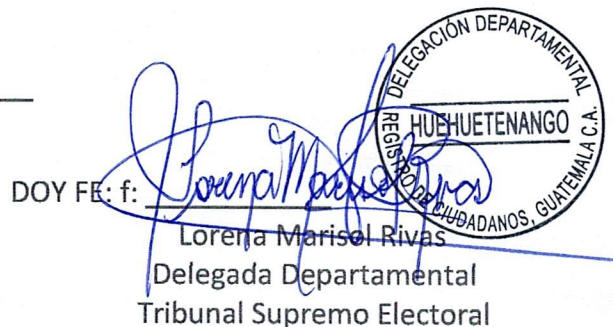 DELEGACIÓN DEPARTAMENTAL
HUEHUETENANGO
REGISTRO DE CIUDADANOS, GUATEMALA C.A.
DOY FE: f:
Lorena Marisol Rivas
Lorena Marisol Rivas
Delegada Departamental
Tribunal Supremo Electoral